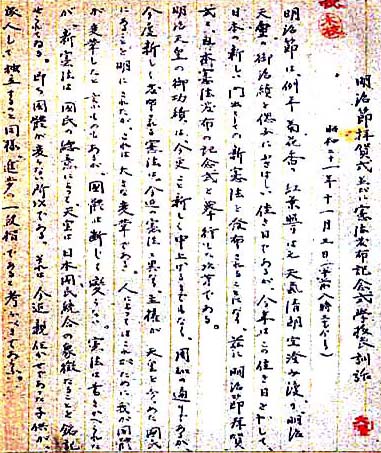 明治節拝賀式並に憲法発布記念式学校長訓話
昭和二十一年十一月三日(午前八時
明治節は、例年菊花香り紅葉照り映え天気清朝空澄み渡り、明治
天皇の御治績を偲ぶにふさはしい佳き日であるが、今年はこの佳き日を卜して、
日本の新しい門出の新憲法を発布されることになり、茲に明治節拝賀
式と日本新憲法発布の記念式を挙行した次第である。
明治天皇の御功績は今更に新しく申上げるまでもなく、周知の通りであるが、
今度新しく発布される憲法は今迄の憲法と異なる主権が天皇を含めた国民
にあることを明にされたが、これは大きな変革である。人によってはそれがために我が国体
が変革したと云ふものもあるが、国体は断じて変らない。憲法に書き
が、新憲法には国民の総意によって天皇は日本国民統合の象徴なることを銘記
せられてゐる。即ち国体が変らない所以である。恰も今迄親任かせであった子供が
成人して独立すると同様、進歩の一段階であると考へるべきであらう。